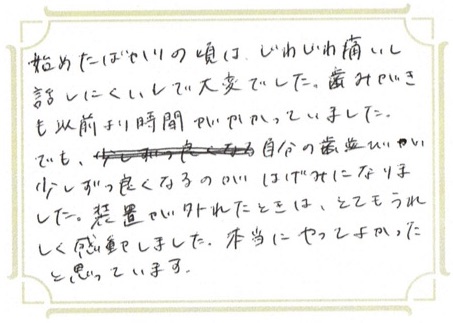 始めたばかりの頃は、じわじわ痛いし
話しにくいしで大変でした。歯みがき
も以前より時間がかかっていました。
でも、少しずつ良くなる自分の歯並びが
少しずつ良くなるのがはげみになりま
した。装置が外れたときは、とてもうれ
しく感動しました。本当にやってよかった
と思っています。